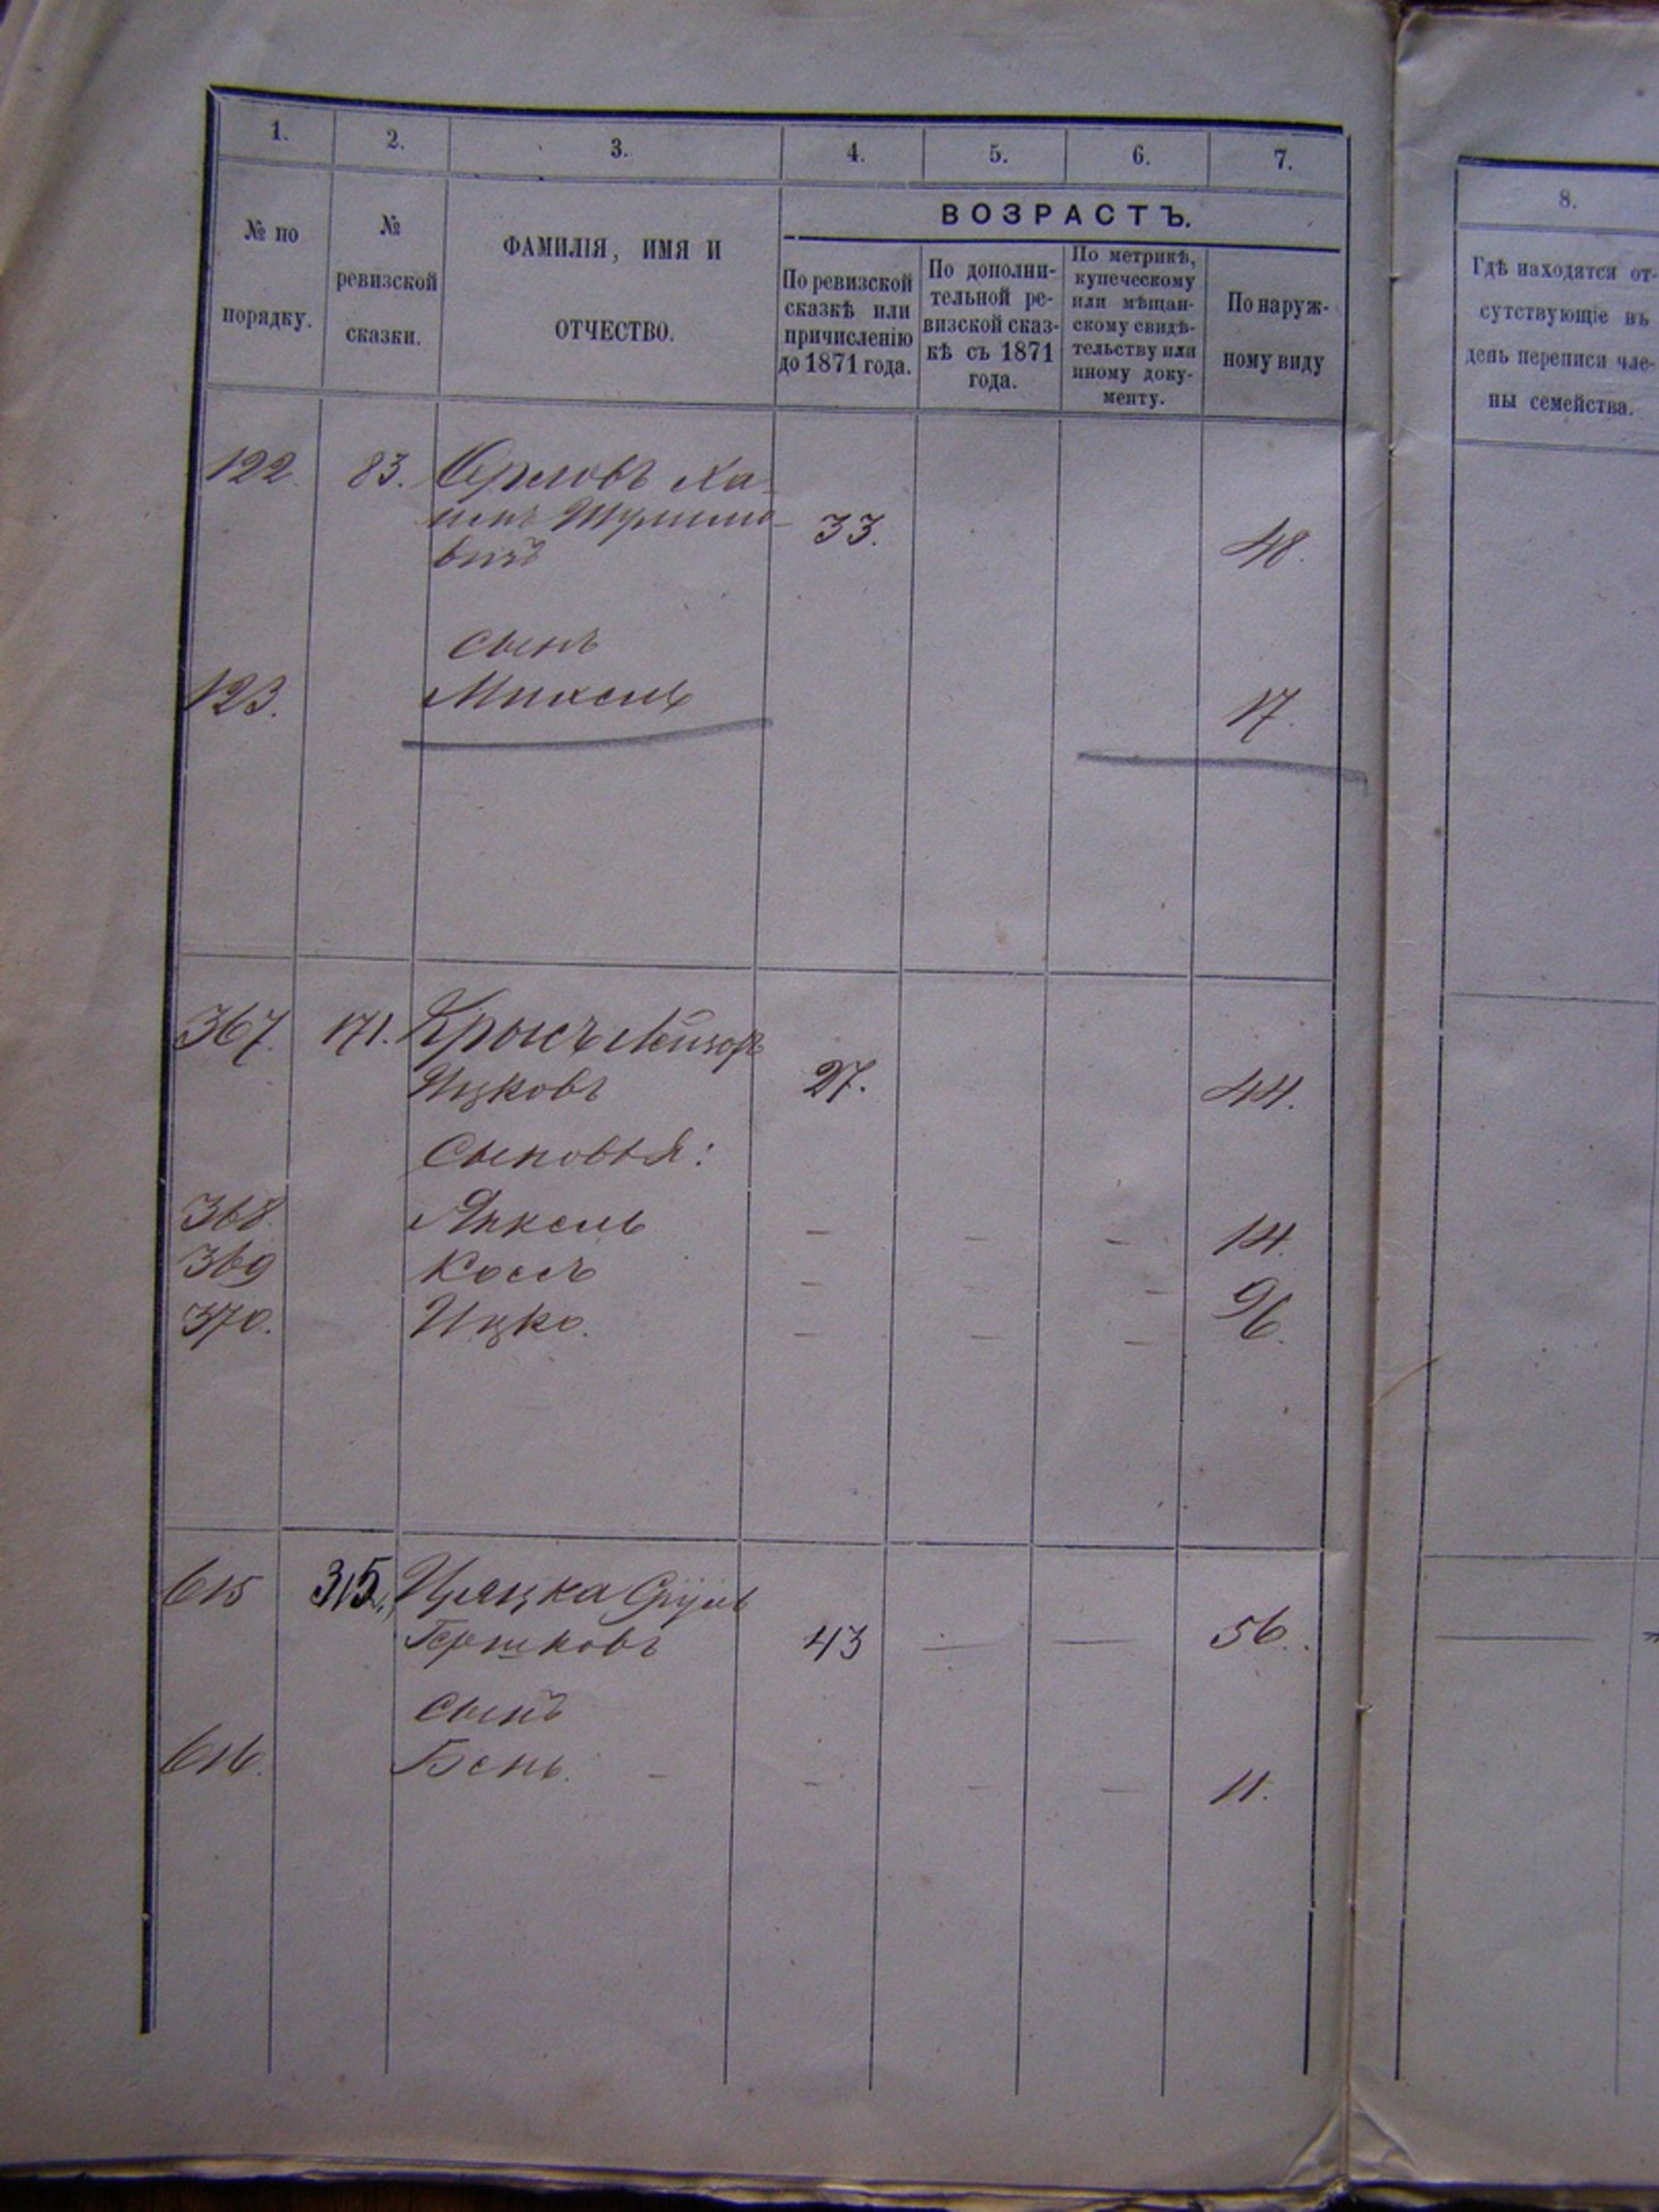 1. 2. 3. 4. 5. 6. 7.
№ по порядку.
№ ревизской сказки.
ФАМИЛІЯ, ИМЯ И ОТЧЕСТВО.
ВОЗРАСТЪ.
По ревизской сказкѣ или причисленію до 1871 года.
По дополнительной ревизской сказкѣ съ 1871 года.
По метрикѣ, купеческому или мѣщанскому свидѣтельству или иному документу.
По наружному виду
8.
Гдѣ находятся от-
сутствующіе въ
день переписи чле-
ны семейства.
122. 83. Орловъ Ха-
33. 48.
вичъ
сынъ
123. 17.
367. 171. Крысъ Лейзоръ
Ицковъ 27. 44.
Сыновья:
368. Янкель — — — 14.
369 — — — 9
370. Ицко. — — — 6.
615 315.
Гершковъ 43 — — 56. —
сынъ
616. Бень. — — — — 11.